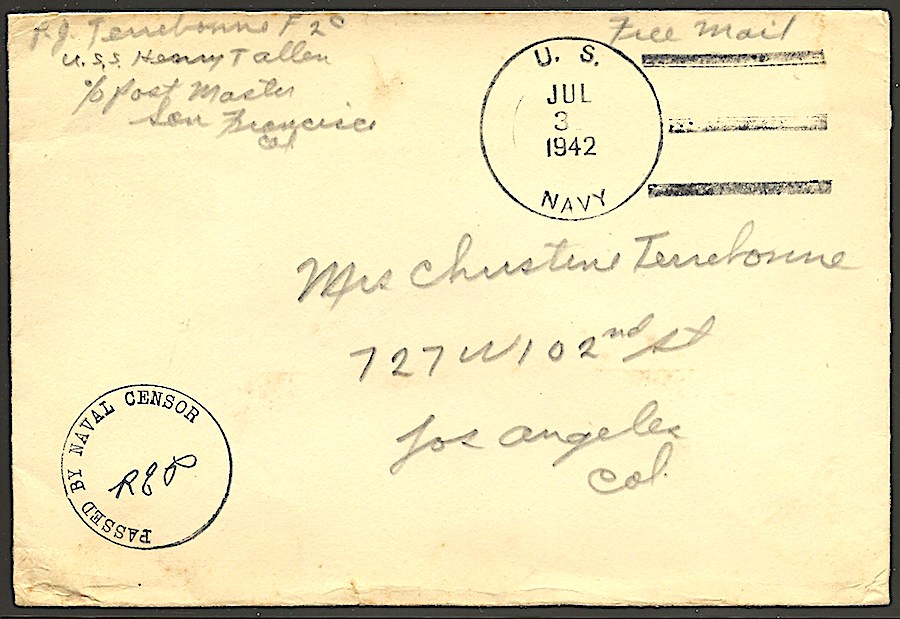 P.J. Terrebonne F 2c
U.S.S. Henry T Allen
c/o Post Master
San Francisco
Cal
Free Mail
U. S.
JUL
3
1942
NAVY
Mrs Christine Terrebonne
727 W 102nd St
Los Angeles
Cal.
PASSED BY NAVAL CENSOR
REP